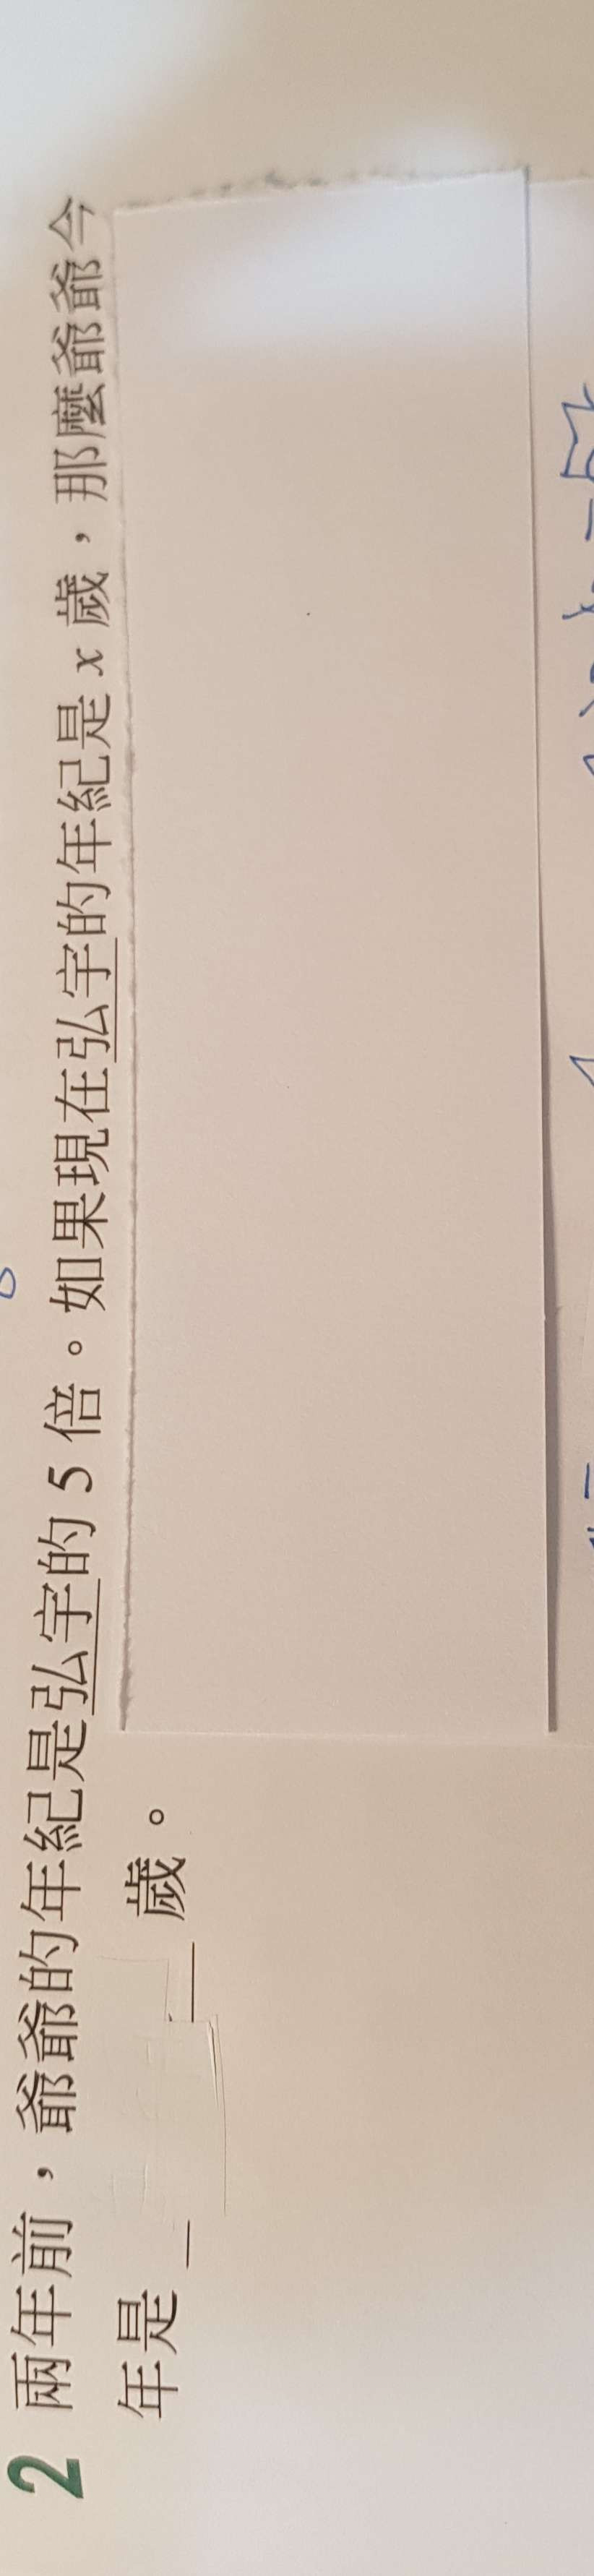 2 兩年前，爺爺的年紀是弘宇的 5 倍。如果現在弘宇的年紀是 x 歲，那麼爺爺今
年是＿＿歲。